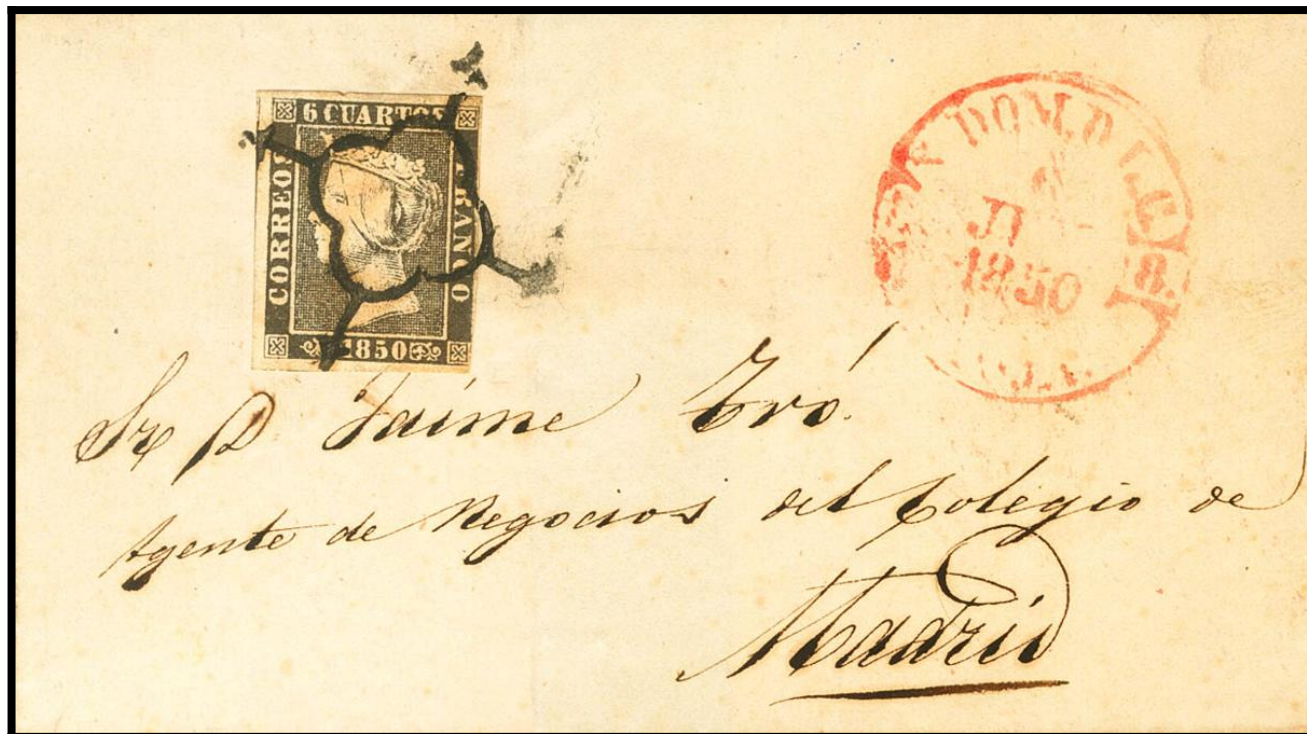 6 CUARTOS
CORREOS
FRANCO
1850
DOM. D
1850
Sr D. Jaime Tró.
Agente de Negocios del Colegio de
Madrid